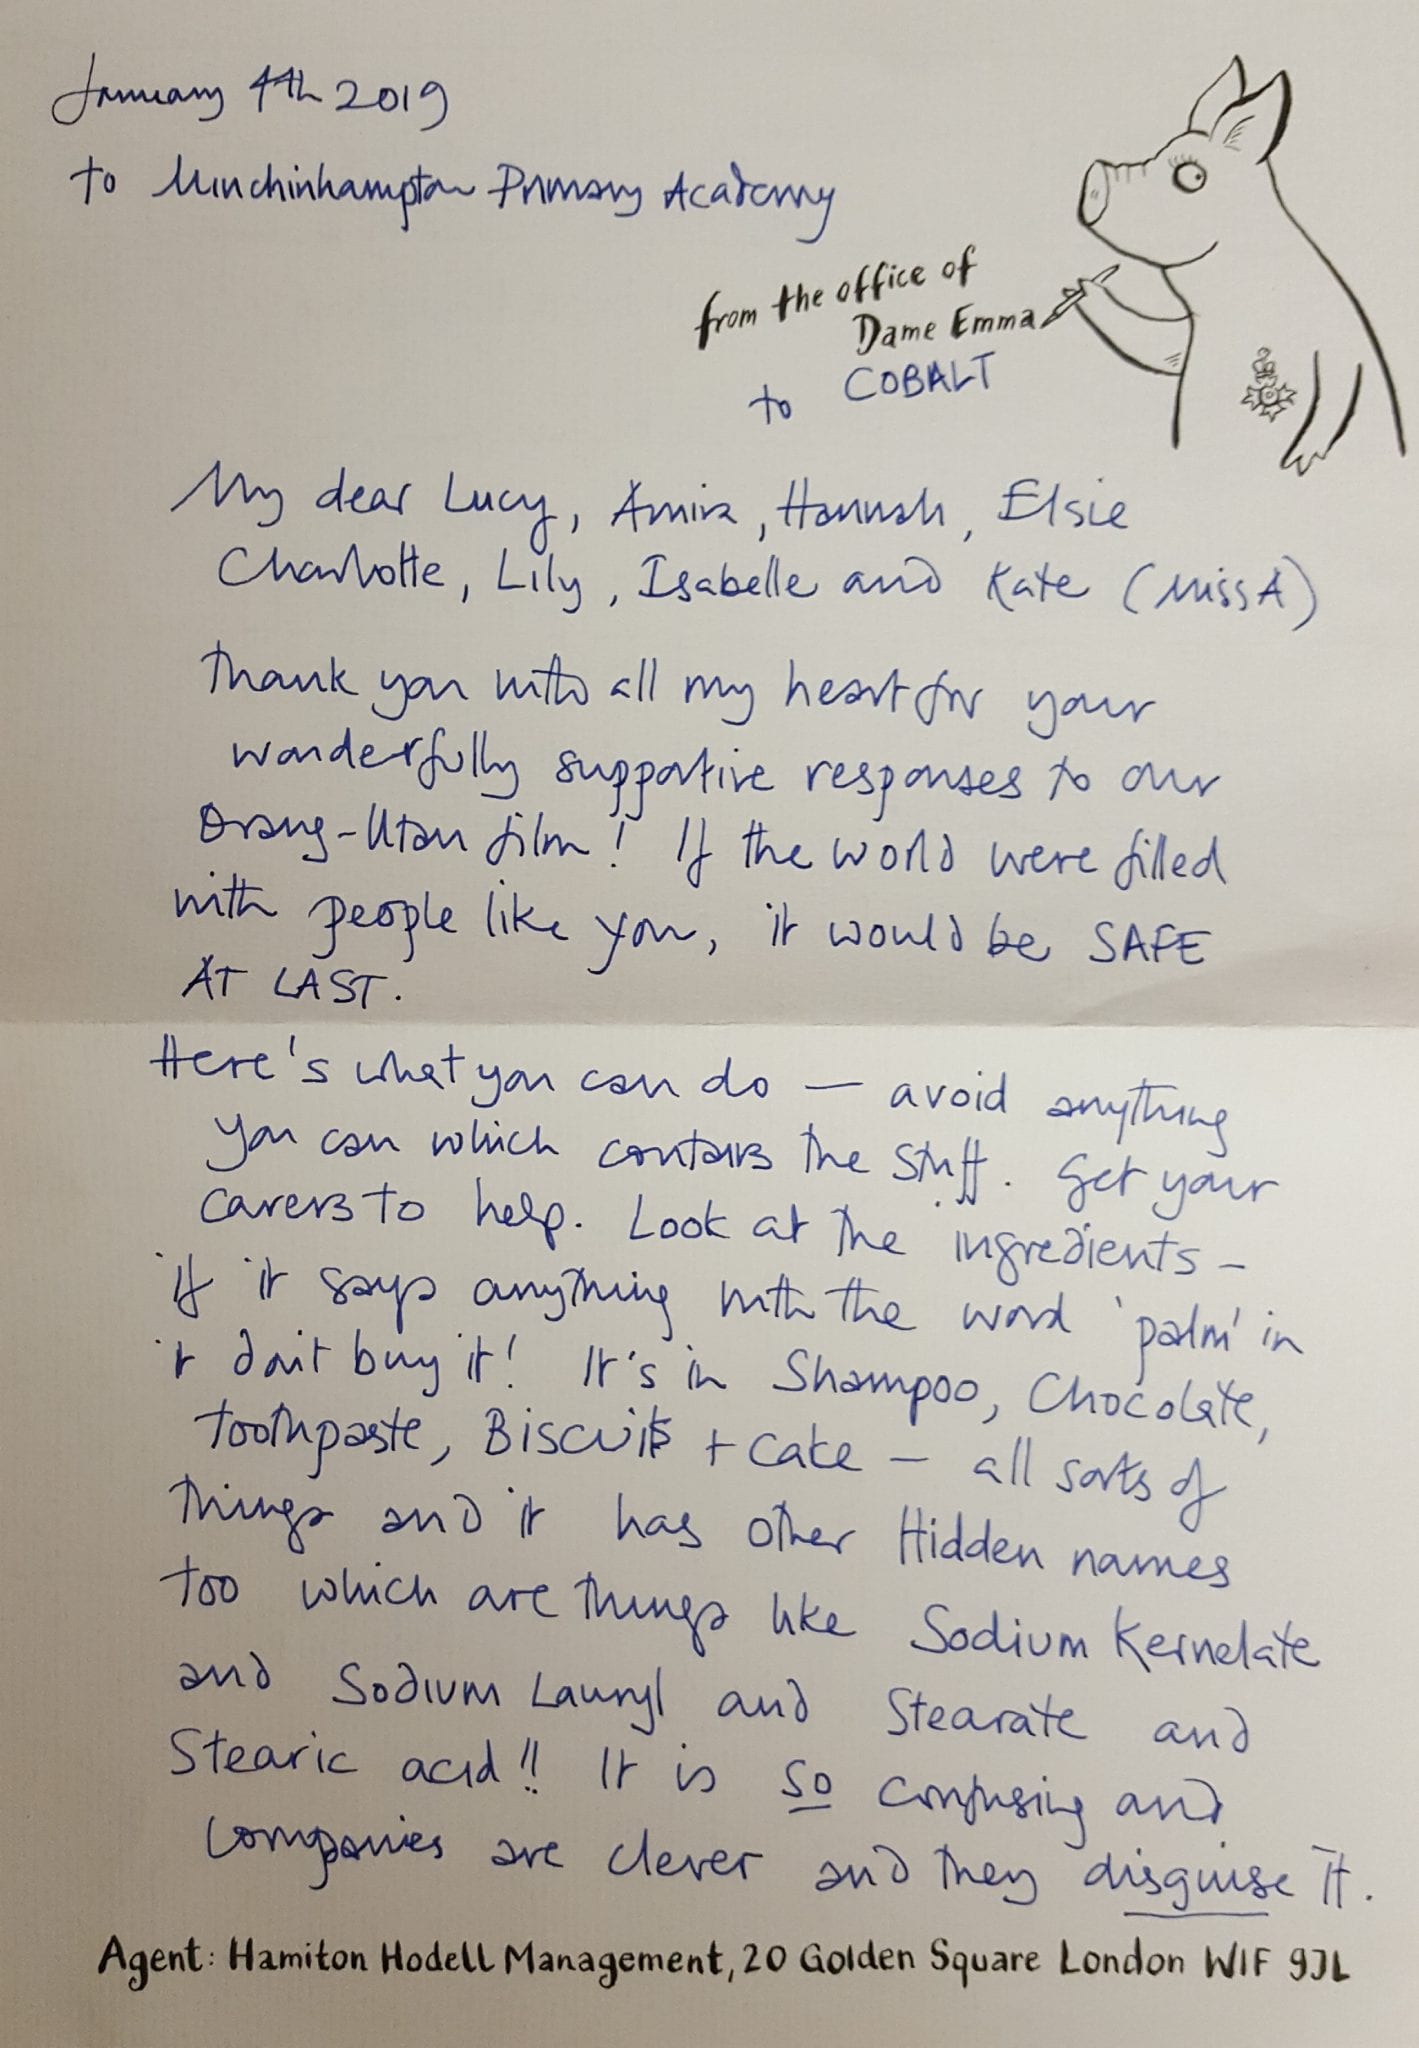 January 4th 2019
to Minchinhampton Primary Academy
from the office of
Dame Emma
to COBALT
My dear Lucy, Amira, Hannah, Elsie
Charlotte, Lily, Isabelle and Kate (Miss A)
Thank you with all my heart for your
wonderfully supportive responses to our
Orang-Utan film! If the world were filled
with people like you, it would be SAFE
AT LAST.
Here's what you can do — avoid anything
you can which contains the stuff. Get your
carers to help. Look at the ingredients –
if it says anything with the word 'palm' in
it don't buy it! It's in Shampoo, Chocolate,
toothpaste, Biscuits + cake — all sorts of
things and it has other Hidden names
too which are things like Sodium Kernelate
and Sodium Lauryl and Stearate and
Stearic acid!! It is so confusing and
companies are clever and they disguise it.
Agent: Hamiton Hodell Management, 20 Golden Square London W1F 9JL